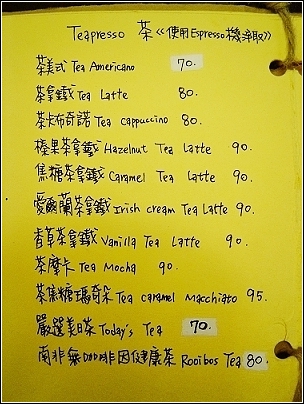 Teapresso 茶《使用Espresso機沖取》
茶美式 Tea Americano 70.
茶拿鐵 Tea Latte 80.
茶卡布奇諾 Tea cappuccino 80.
榛果茶拿鐵 Hazelnut Tea Latte 90.
焦糖茶拿鐵 Caramel Tea Latte 90.
愛爾蘭茶拿鐵 Irish cream Tea Latte 90.
香草茶拿鐵 Vanilla Tea Latte 90.
茶摩卡 Tea Mocha 90.
茶焦糖瑪奇朵 Tea caramel Macchiato 95.
嚴選美日茶 Today's Tea 70.
南非無咖啡因健康茶 Rooibos Tea 80.